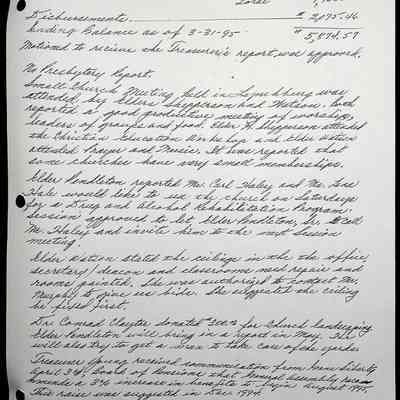 Total
Disbursements $ 2,095.46
Ending Balance as of 3-31-95 $ 5,874.57
Motioned to receive the Treasurer's report, was approved.
No Presbytery Report.
Small Church Meeting held in Lynchburg was
attended by Elders Shepperson and Watson. Both
reported a good productive meeting of worship,
leaders of groups and food. Elder H. Shepperson attended
the Christian Education Workshop and Elder Watson
attended Prayer and Music. It was reported that
some churches have very small memberships.
Elder Pendleton reported Mr. Carl Haley and Mr.
Hale would like to use the church on Saturdays
for a Drug and Alcohol Rehabilitation Program.
Session approved to let Elder Pendleton, Sr. call
Mr. Haley and invite him to the next Session
meeting.
Elder Watson stated the ceilings in the the office,
secretary/deacon and classrooms need repair and
rooms painted. She was authorized to contact Mr.
Murphy to give us bids. She suggested the ceiling
be fixed first.
Dr. Conrad Claytor donated for Church landscaping
Elder Pendleton will bring in a report in May.
will also try to get a man to take care of the yards.
Treasurer Young received communication from
April 3-4, Board of Pensions that General Assembly recom
mends a 3% increase in benefits to begin August 1995.
This raise was suggested in Dec. 1994.